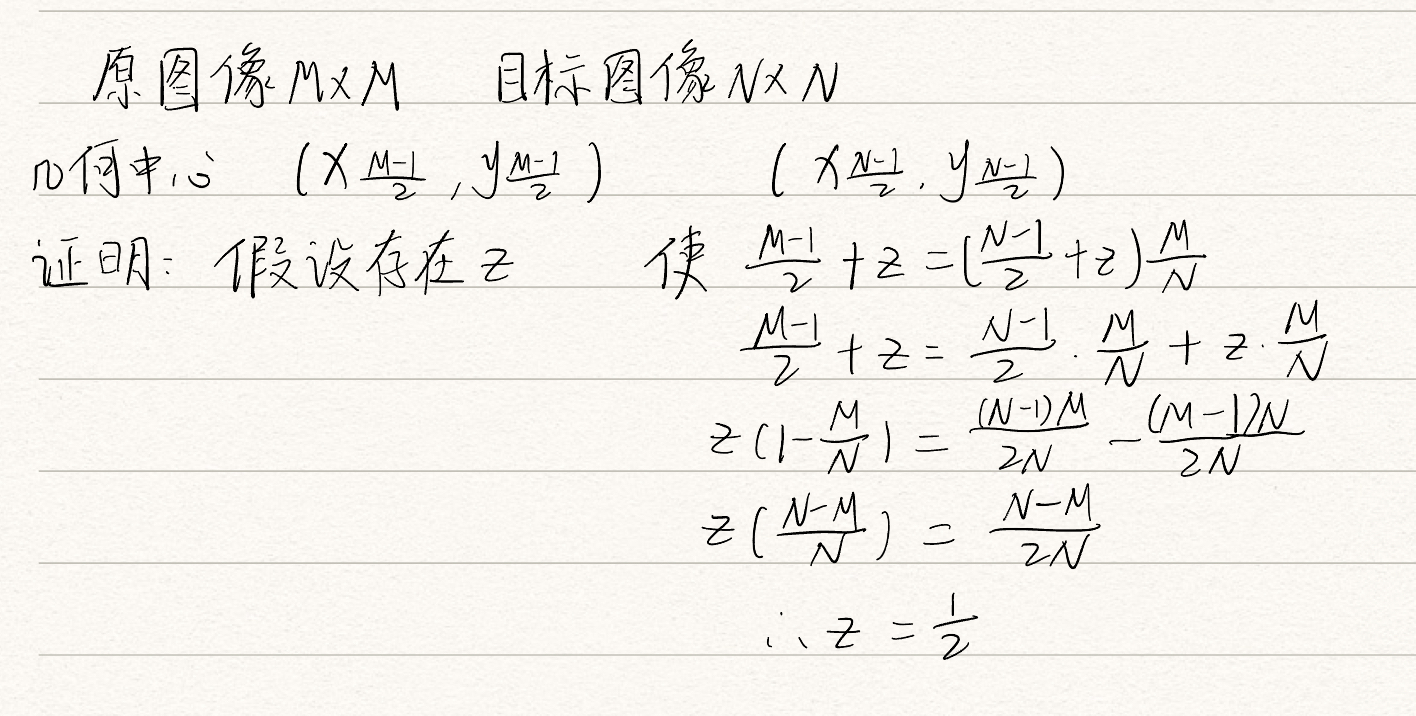 原图像 M×M 目标图像 N×N
几何中心 (x_{\frac{M-1}{2}}, y_{\frac{M-1}{2}}) (x_{\frac{N-1}{2}}, y_{\frac{N-1}{2}})
证明: 假设存在 z 使 \frac{M-1}{2} + z = (\frac{N-1}{2} + z)\frac{M}{N}
\frac{M-1}{2} + z = \frac{N-1}{2} · \frac{M}{N} + z · \frac{M}{N}
z(1-\frac{M}{N}) = \frac{(N-1)M}{2N} - \frac{(M-1)N}{2N}
z(\frac{N-M}{N}) = \frac{N-M}{2N}
∴ z = \frac{1}{2}